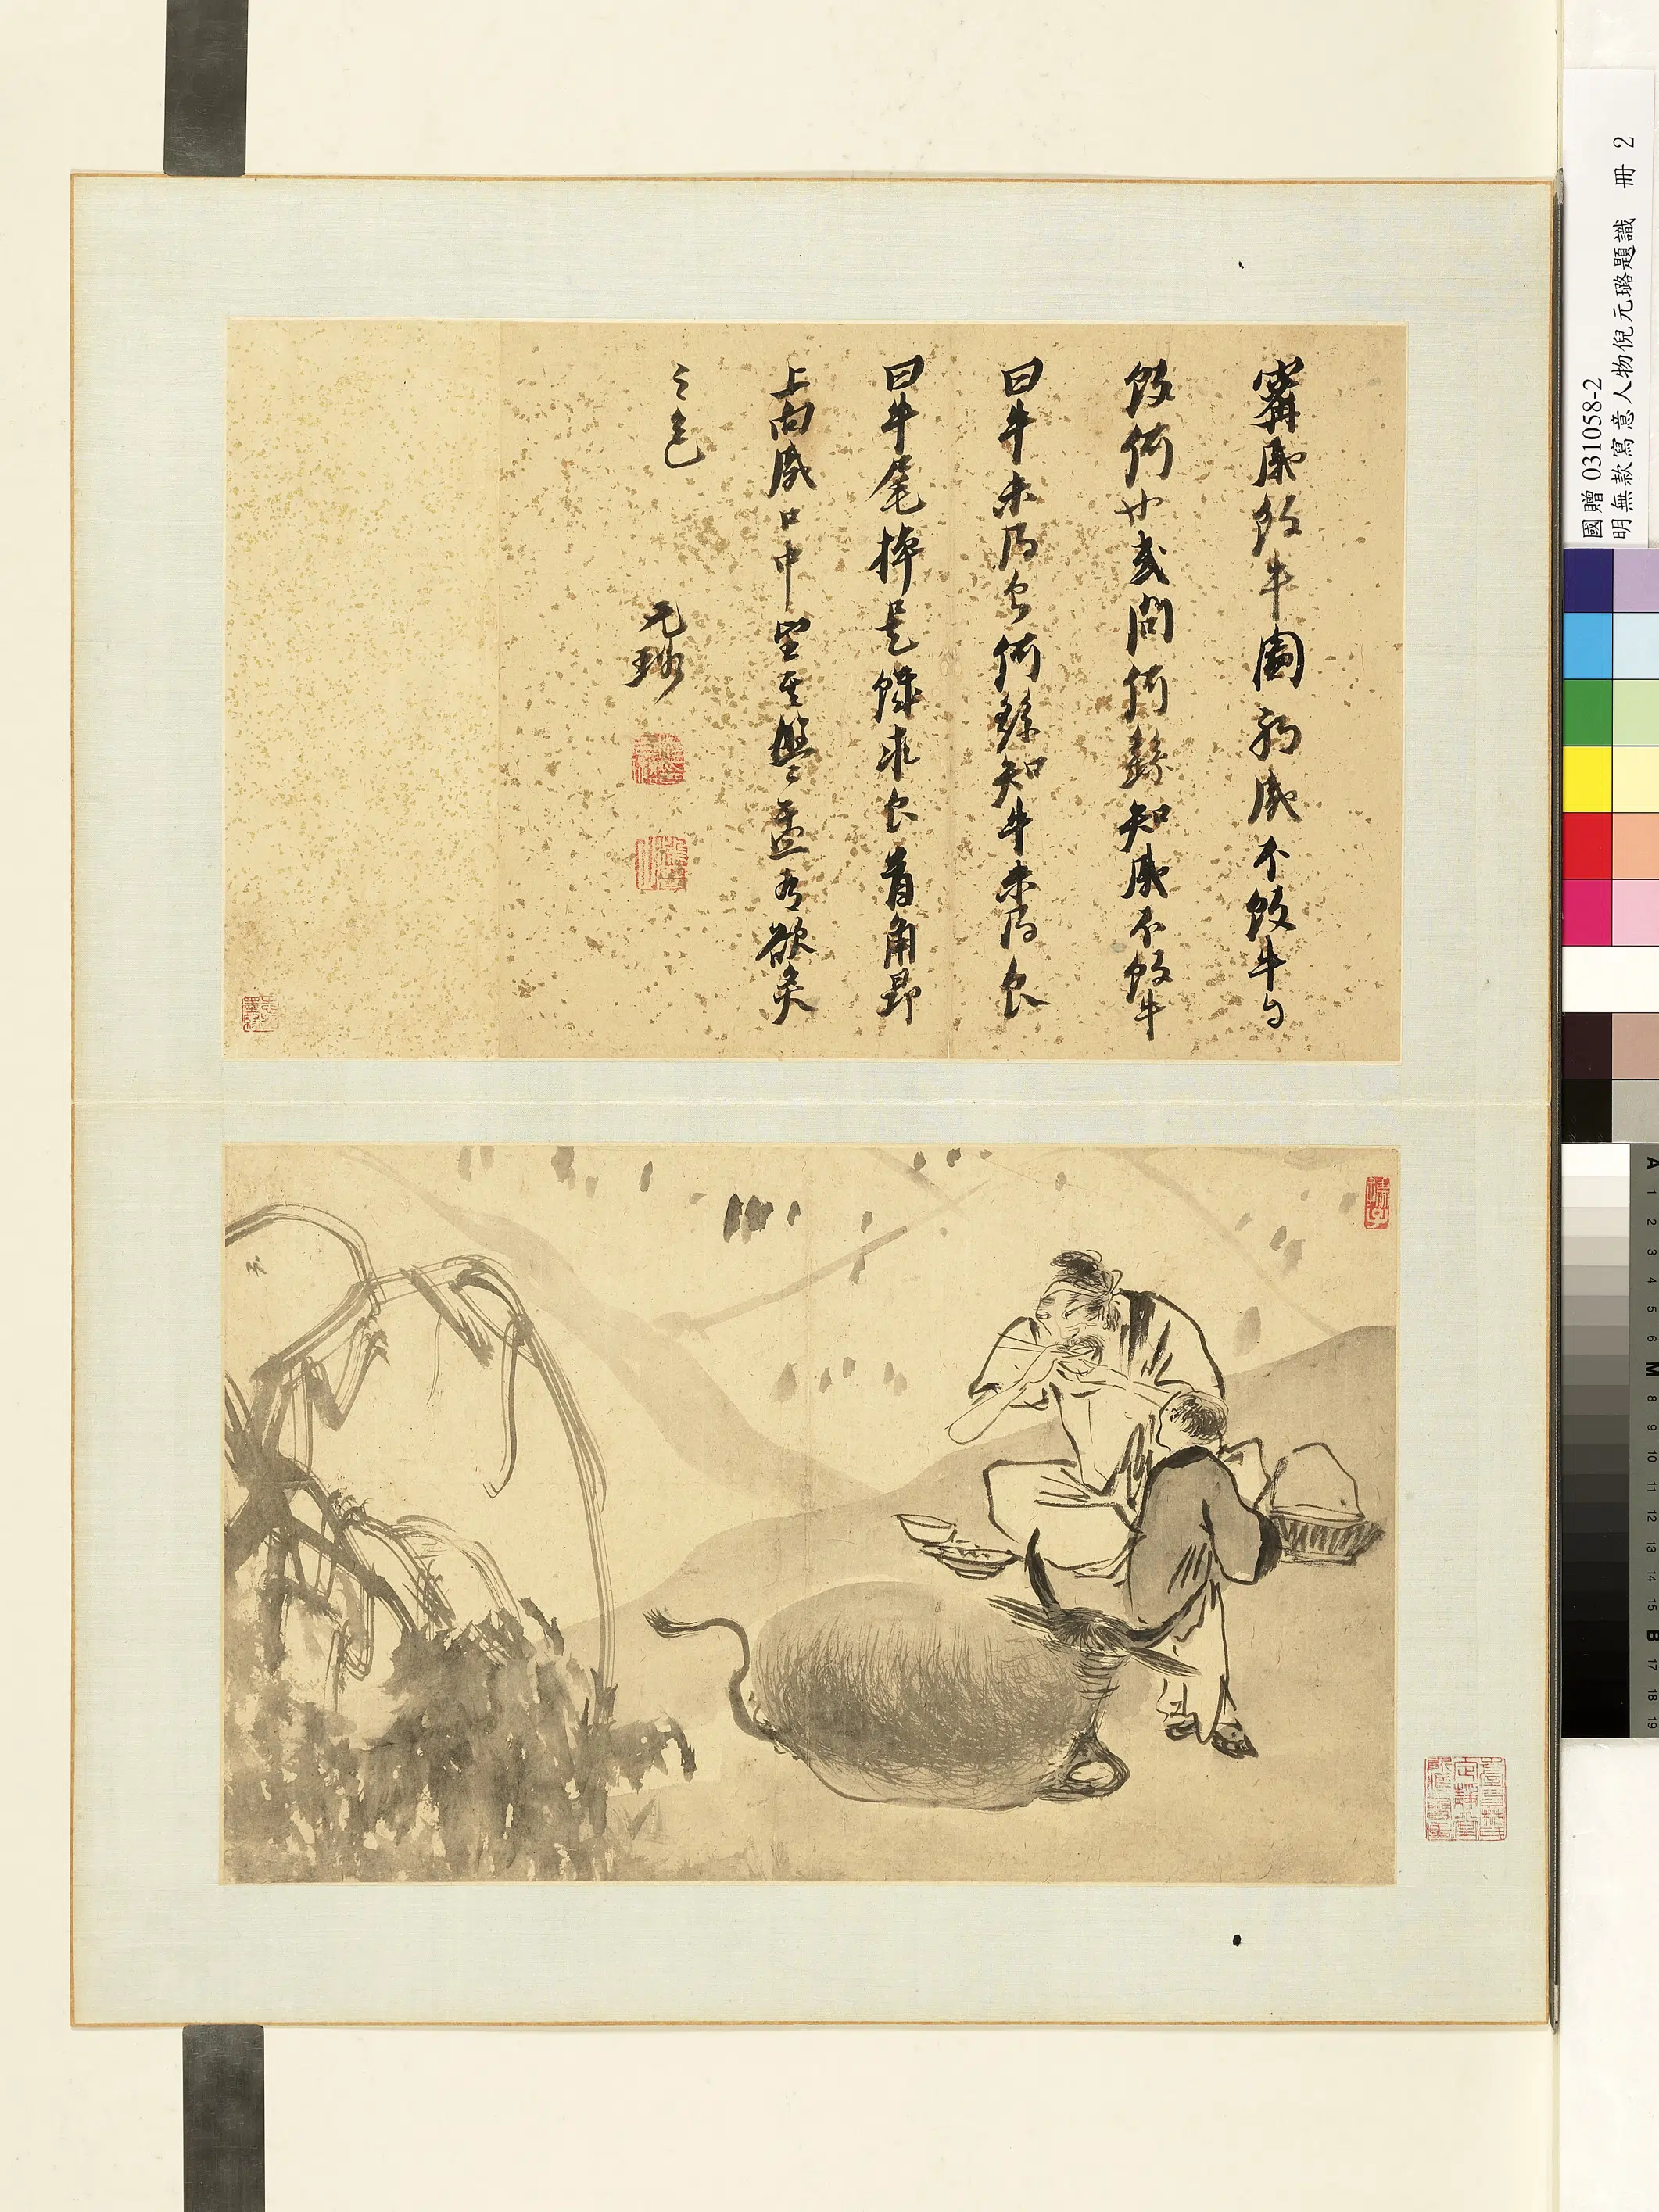 甯戚飯牛圖戚不飯牛自
飯何也或問何繇知戚不飯牛
曰牛未得食何繇知牛未得食
曰牛尾掉是饑求食首角昂
上向戚口中望其盤盂有欲炙
之色
元璐
國贈 031058-2
明無款寫意人物倪元璐題識 冊 2
A 1 2 3 4 5 6 M 8 9 10 11 12 13 14 15 B 17 18 19